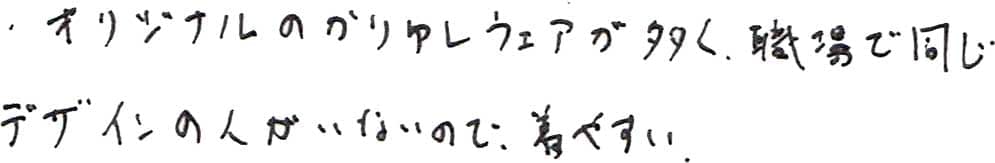 ・オリジナルのかりゆしウェアが多く、職場で同じ
デザインの人がいないので、着やすい。